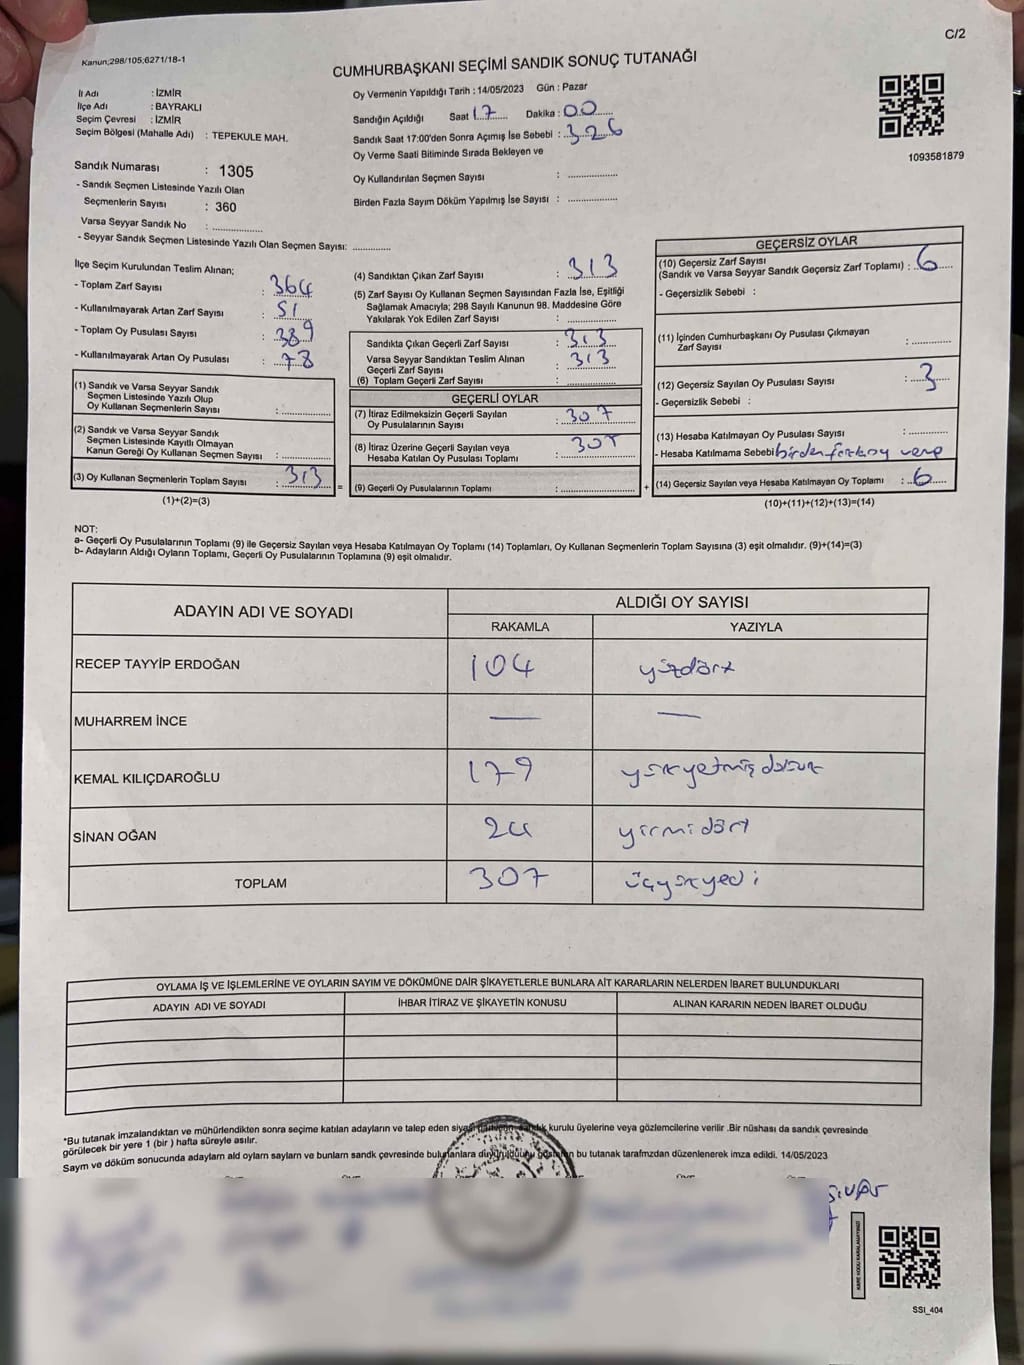 C/2
Kanun;298/105;6271/18-1
CUMHURBAŞKANI SEÇİMİ SANDIK SONUÇ TUTANAĞI
İl Adı : İZMİR
İlçe Adı : BAYRAKLI
Seçim Çevresi : İZMİR
Seçim Bölgesi (Mahalle Adı) : TEPEKULE MAH.
Sandık Numarası : 1305
- Sandık Seçmen Listesinde Yazılı Olan
Seçmenlerin Sayısı : 360
Varsa Seyyar Sandık No :
- Seyyar Sandık Seçmen Listesinde Yazılı Olan Seçmen Sayısı:
Oy Vermenin Yapıldığı Tarih : 14/05/2023 Gün : Pazar
Sandığın Açıldığı Saat 17 Dakika : 00
Sandık Saat 17:00'den Sonra Açımış İse Sebebi : 326
Oy Verme Saati Bitiminde Sırada Bekleyen ve
Oy Kullandırılan Seçmen Sayısı :
Birden Fazla Sayım Döküm Yapılmış İse Sayısı :
1093581879
İlçe Seçim Kurulundan Teslim Alınan;
- Toplam Zarf Sayısı : 364
- Kullanılmayarak Artan Zarf Sayısı : 51
- Toplam Oy Pusulası Sayısı : 389
- Kullanılmayarak Artan Oy Pusulası : 78
(1) Sandık ve Varsa Seyyar Sandık
Seçmen Listesinde Yazılı Olup
Oy Kullanan Seçmenlerin Sayısı :
(2) Sandık ve Varsa Seyyar Sandık
Seçmen Listesinde Kayıtlı Olmayan
Kanun Gereği Oy Kullanan Seçmen Sayısı :
(3) Oy Kullanan Seçmenlerin Toplam Sayısı : 313
(1)+(2)=(3)
=
(4) Sandıktan Çıkan Zarf Sayısı : 313
(5) Zarf Sayısı Oy Kullanan Seçmen Sayısından Fazla İse, Eşitliği
Sağlamak Amacıyla; 298 Sayılı Kanunun 98. Maddesine Göre
Yakılarak Yok Edilen Zarf Sayısı :
Sandıkta Çıkan Geçerli Zarf Sayısı : 313
Varsa Seyyar Sandıktan Teslim Alınan
Geçerli Zarf Sayısı : 313
(6) Toplam Geçerli Zarf Sayısı :
GEÇERLİ OYLAR
(7) İtiraz Edilmeksizin Geçerli Sayılan
Oy Pusulalarının Sayısı : 307
(8) İtiraz Üzerine Geçerli Sayılan veya
Hesaba Katılan Oy Pusulası Toplamı :
(9) Geçerli Oy Pusulalarının Toplamı :
+
GEÇERSİZ OYLAR
(10) Geçersiz Zarf Sayısı
(Sandık ve Varsa Seyyar Sandık Geçersiz Zarf Toplamı) : 6
- Geçersizlik Sebebi :
(11) İçinden Cumhurbaşkanı Oy Pusulası Çıkmayan
Zarf Sayısı :
(12) Geçersiz Sayılan Oy Pusulası Sayısı : 3
- Geçersizlik Sebebi :
(13) Hesaba Katılmayan Oy Pusulası Sayısı :
- Hesaba Katılmama Sebebi birden
(14) Geçersiz Sayılan veya Hesaba Katılmayan Oy Toplamı : 6
(10)+(11)+(12)+(13)=(14)
NOT:
a- Geçerli Oy Pusulalarının Toplamı (9) ile Geçersiz Sayılan veya Hesaba Katılmayan Oy Toplamı (14) Toplamları, Oy Kullanan Seçmenlerin Toplam Sayısına (3) eşit olmalıdır. (9)+(14)=(3)
b- Adayların Aldığı Oyların Toplamı, Geçerli Oy Pusulalarının Toplamına (9) eşit olmalıdır.
ADAYIN ADI VE SOYADI
ALDIĞI OY SAYISI
RAKAMLA YAZIYLA
RECEP TAYYİP ERDOĞAN 104 yüzdört
MUHARREM İNCE — —
KEMAL KILIÇDAROĞLU 179 yüzyetmiş dokuz
SİNAN OĞAN 24 yirmidört
TOPLAM 307 üçyüzyedi
OYLAMA İŞ VE İŞLEMLERİNE VE OYLARIN SAYIM VE DÖKÜMÜNE DAİR ŞİKAYETLERLE BUNLARA AİT KARARLARIN NELERDEN İBARET BULUNDUKLARI
ADAYIN ADI VE SOYADI İHBAR İTİRAZ VE ŞİKAYETİN KONUSU ALINAN KARARIN NEDEN İBARET OLDUĞU
*Bu tutanak imzalandıktan ve mühürlendikten sonra seçime katılan adayların ve talep eden siyasi kurulu üyelerine veya gözlemcilerine verilir .Bir nüshası da sandık çevresinde
görülecek bir yere 1 (bir ) hafta süreyle asılır.
Sayım ve döküm sonucunda adayların ald oyların sayları ve bunların sandk çevresinde bulunanlara duyurulduğunu gösteren bu tutanak tarafmzdan düzenlenerek imza edildi. 14/05/2023
SSI_404